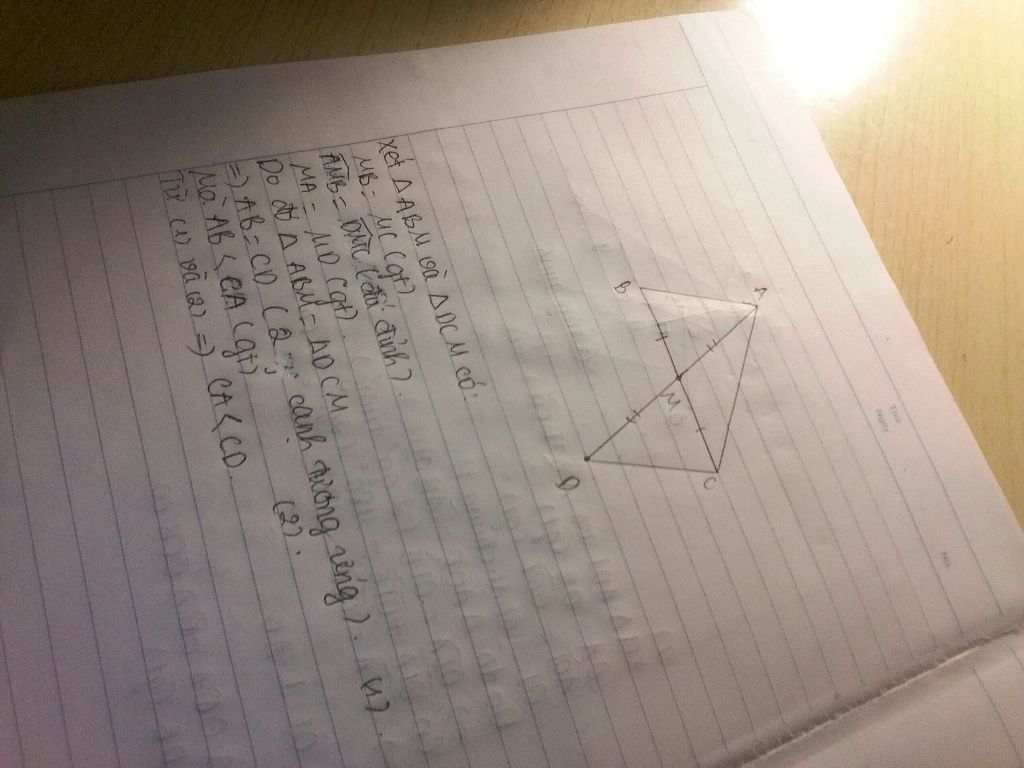 A
B
M
C
D
Xét △ABM và △DCM có:
MB = MC (gt)
AMB = DMC (đối đỉnh)
MA = MD (gt)
Do đó △ABM = △DCM
=) AB = CD (2 cạnh tương ứng). (1)
Mà AB < CA (gt) (2).
Từ (1) và (2) =) CA < CD.